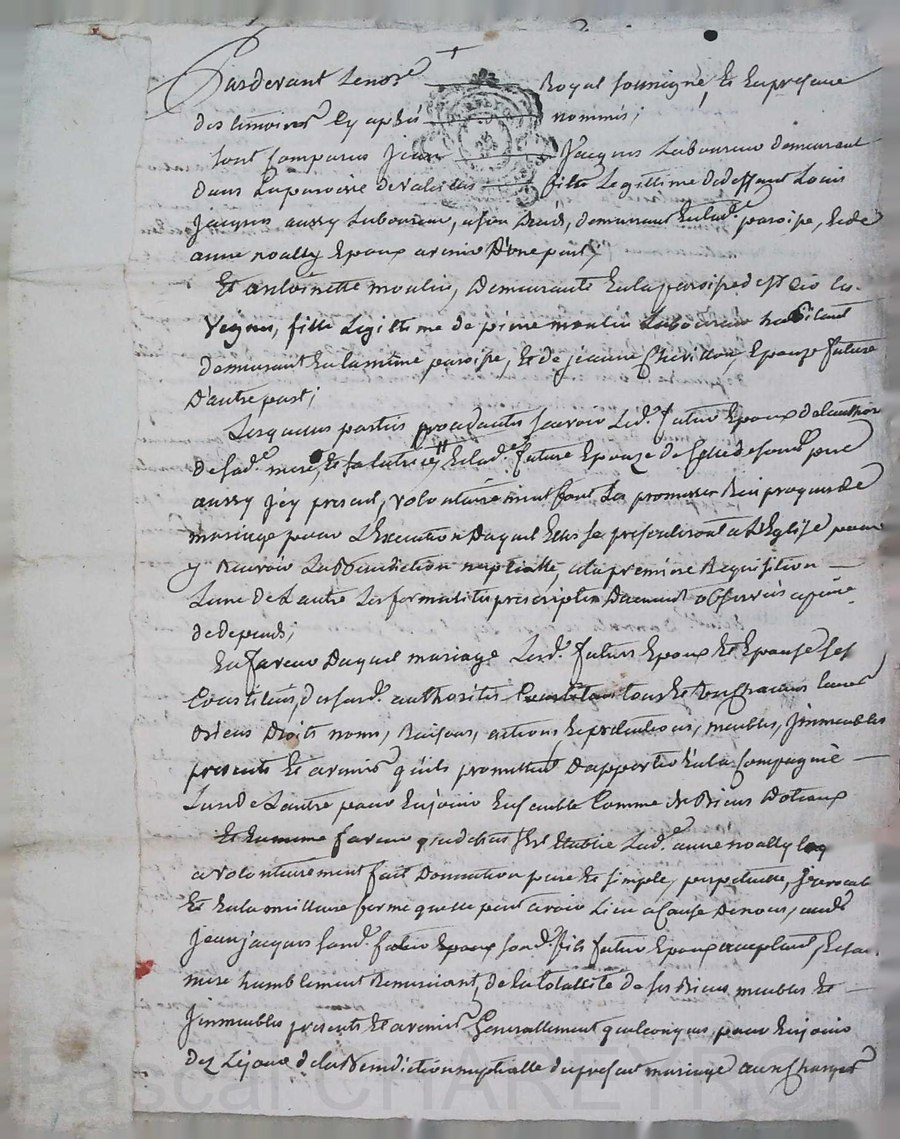 Pardevant Lenore Royal soussigné, Et En presance
des temoins Cy aprés nommés;
sont Comparus Jean Jacques Laboureur demeurant
dans La paroisse de filz Legittime de deffunt Louis
Jacques aussy Laboureur, demurant En lad. paroisse, Et de
anne noally Epoux avenir D'une part,
Et antoinette moulin, Demeurante En la paroisse de
fille Legittime de pierre moulin Laboureur habitant
demurant En la même paroisse, Et de jeanne Chevillon, Epouze future
D'autre part;
Lesquelles parties procedantes scavoir Led. futur Epoux de l'authorité
de sad. mere, Et Lad. future Epouze de Celle de sond. pere
aussy jcy present, volontairement font La promesse Reciproques de
mariage pour L'Execution Duquel Elles se presenteront a L'Eglise pour
y Recevoir La Benediction nuptialle, a la premiere Requisition
L'une de L'autre Les formalités prescriptes Duement observées a peine
de depends;
En faveur Duquel mariage Lesd. futurs Epoux Et Epouse se
Constituent, desd. authorités tous Et Chacuns Leurs
Biens Droits noms, Raisons, actions Et pretentions, meubles, jmmeubles
presents Et avenir qu'ils promettent D'apporter En la Compagnie
L'un de L'autre pour En jouir Ensemble Comme de Biens Dotaux
Et En même faveur que dessus s'est Etablie Lad. anne noally Laq
a volontairement fait Donnation pure Et simple, perpetuelle, jrrevocable
Et En la meilleure forme qu'elle peut avoir Lieu a Cause De noces, aud.
Jean jacques sond. fils futur Epoux acceptant, Et sa
mere humblement Remerciant, de La totallité de ses Biens meubles Et
jmmeubles presents Et avenir Generallement quelconques, pour En jouir
dez Le jour de La Benediction nuptialle du present mariage aux Charges
Pascal CHAREYRON